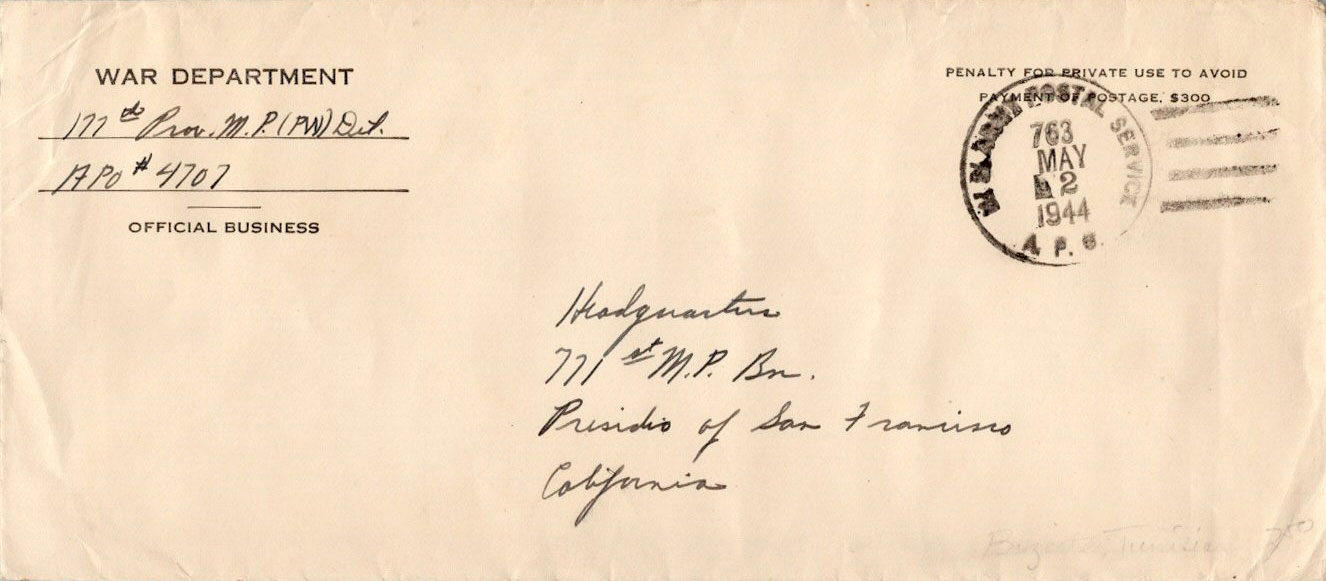 WAR DEPARTMENT
177th Prov. M.P. (PW) Det.
APO # 4707
OFFICIAL BUSINESS
PENALTY FOR PRIVATE USE TO AVOID
PAYMENT OF POSTAGE, $300
POSTAL SERVICE
763
MAY
2
1944
A. P. O.
Headquarters
771st M.P. Bn.
Presidio of San Francisco
California
Tunisia